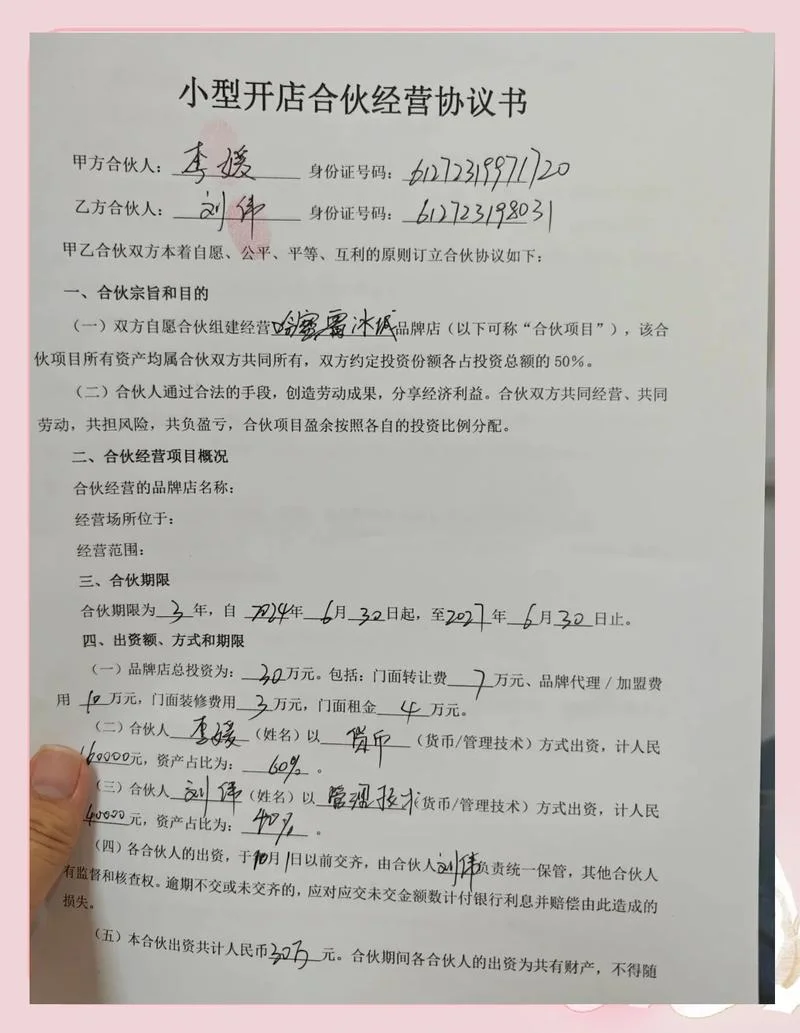 小型开店合伙经营协议书
甲方合伙人：李媛 身份证号码：61272319971720
乙方合伙人：刘伟 身份证号码：612723198031
甲乙合伙双方本着自愿、公平、平等、互利的原则订立合伙协议如下：
一、合伙宗旨和目的
（一）双方自愿合伙组建经营 冰城品牌店（以下可称“合伙项目”），该合
伙项目所有资产均属合伙双方共同所有，双方约定投资份额各占投资总额的50%。
（二）合伙人通过合法的手段，创造劳动成果，分享经济利益。合伙双方共同经营、共同
劳动，共担风险，共负盈亏，合伙项目盈余按照各自的投资比例分配。
二、合伙经营项目概况
合伙经营的品牌店名称：
经营场所位于：
经营范围：
三、合伙期限
合伙期限为3年，自2024年6月30日起，至2027年6月30日止。
四、出资额、方式和期限
（一）品牌店总投资为：30万元。包括：门面转让费7万元、品牌代理/加盟费
用10万元，门面装修费用3万元，门面租金4万元。
（二）合伙人李媛（姓名）以货币（货币/管理技术）方式出资，计人民
160000元，资产占比为：60%。
（三）合伙人刘伟（姓名）以管理技术（货币/管理技术）方式出资，计人民
40000元，资产占比为：40%。
（四）各合伙人的出资，于10月1日以前交齐，由合伙人刘伟负责统一保管，其他合伙人
有监督和核查权。逾期不交或未交齐的，应对应交未交金额数计付银行利息并赔偿由此造成的
损失。
（五）本合伙出资共计人民币30万元。合伙期间各合伙人的出资为共有财产，不得随